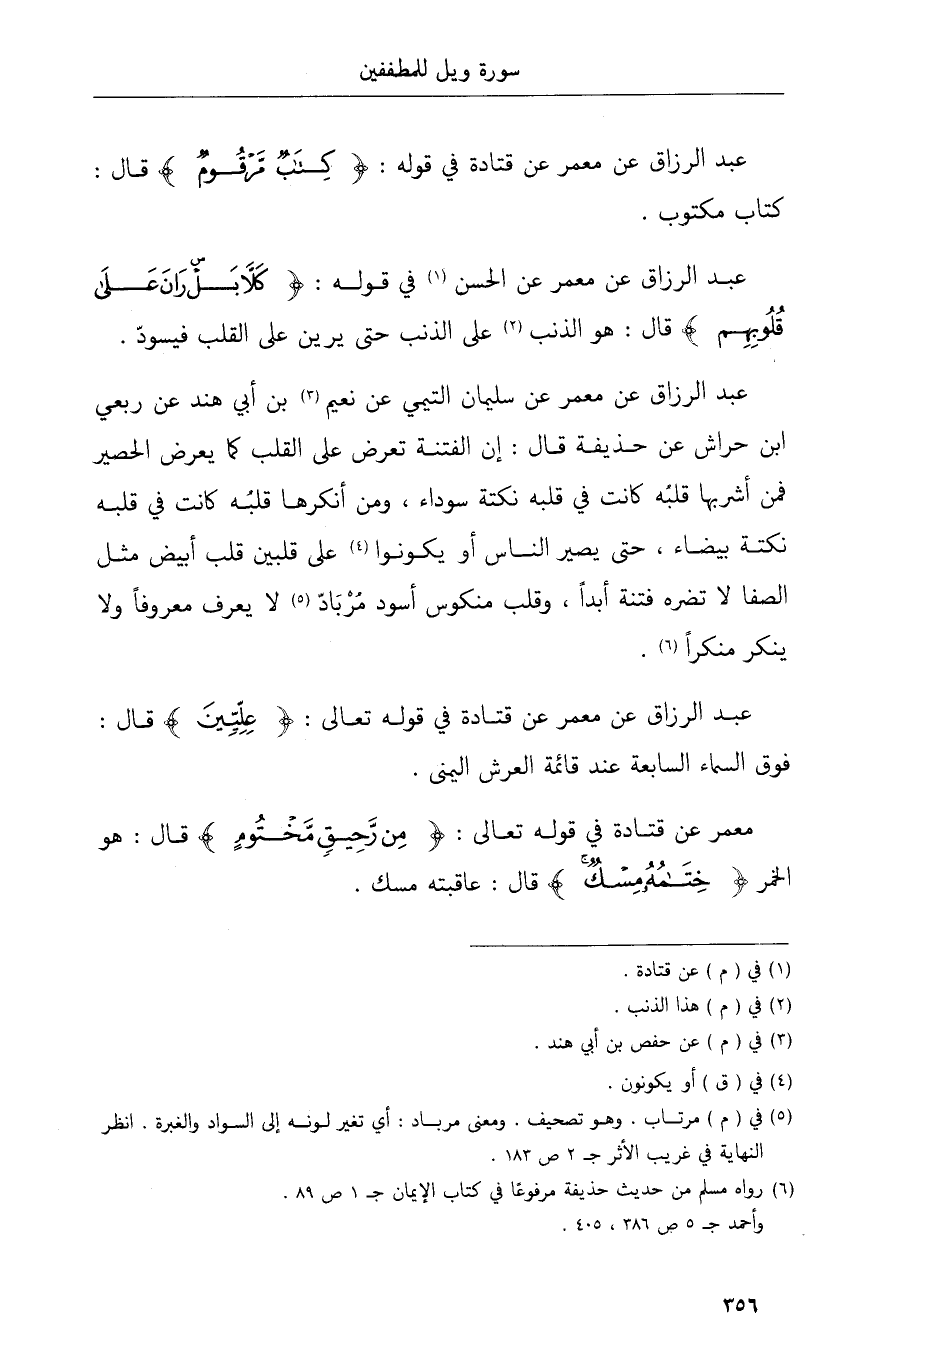 سورة ويل للمطففين
عبد الرزاق عن معمر عن قتادة في قوله : ﴿ كِتَٰبٌ مَّرْقُومٌ ﴾ قال :
كتاب مكتوب .
عبد الرزاق عن معمر عن الحسن (١) في قوله : ﴿ كَلَّا بَلْ ۜ رَانَ عَلَىٰ
قُلُوبِهِم ﴾ قال : هو الذنب (٢) على الذنب حتى يرين على القلب فيسودّ .
عبد الرزاق عن معمر عن سليمان التيمي عن نعيم (٣) بن أبي هند عن ربعي
ابن حراش عن حذيفة قال : إن الفتنة تعرض على القلب كما يعرض الحصير
فمن أشربها قلبُه كانت في قلبه نكتة سوداء ، ومن أنكرها قلبُه كانت في قلبه
نكتة بيضاء ، حتى يصير الناس أو يكونوا (٤) على قلبين قلب أبيض مثل
الصفا لا تضره فتنة أبداً ، وقلب منكوس أسود مُرْبَادّ (٥) لا يعرف معروفاً ولا
ينكر منكراً (٦) .
عبد الرزاق عن معمر عن قتادة في قوله تعالى : ﴿ عِلِّيِّينَ ﴾ قال :
فوق السماء السابعة عند قائمة العرش اليمنى .
معمر عن قتادة في قوله تعالى : ﴿ مِن رَّحِيقٍ مَّخْتُومٍ ﴾ قال : هو
الخمر ﴿ خِتَٰمُهُۥ مِسْكٌ ۚ ﴾ قال : عاقبته مسك .
(١) في ( م ) عن قتادة .
(٢) في ( م ) هذا الذنب .
(٣) في ( م ) عن حفص بن أبي هند .
(٤) في ( ق ) أو يكونون .
(٥) في ( م ) مرتاب . وهو تصحيف . ومعنى مرباد : أي تغير لونه إلى السواد والغبرة . انظر
النهاية في غريب الأثر جـ ٢ ص ١٨٣ .
(٦) رواه مسلم من حديث حذيفة مرفوعًا في كتاب الإيمان جـ ١ ص ٨٩ .
وأحمد جـ ٥ ص ٣٨٦ ، ٤٠٥ .
٣٥٦